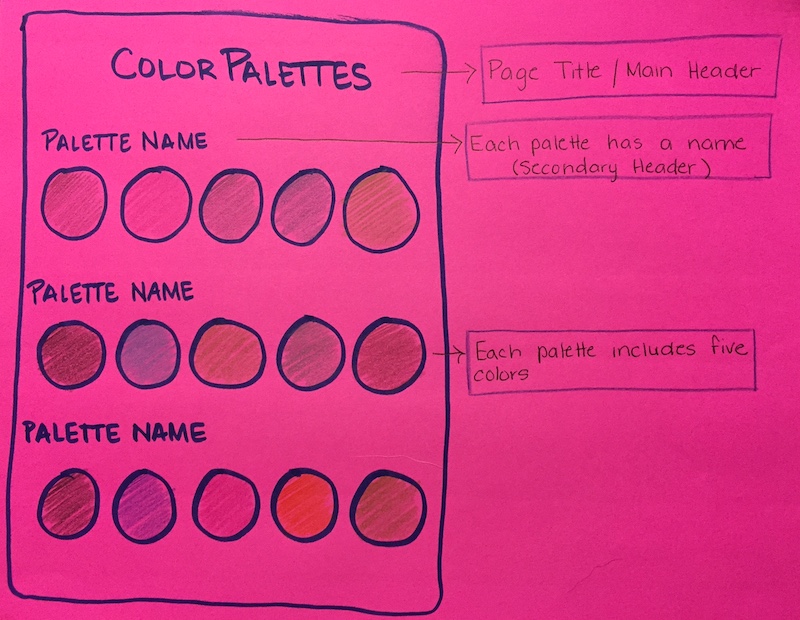 COLOR PALETTES
Page Title / Main Header
PALETTE NAME
Each palette has a name
(Secondary Header)
PALETTE NAME
Each palette includes five
colors
PALETTE NAME